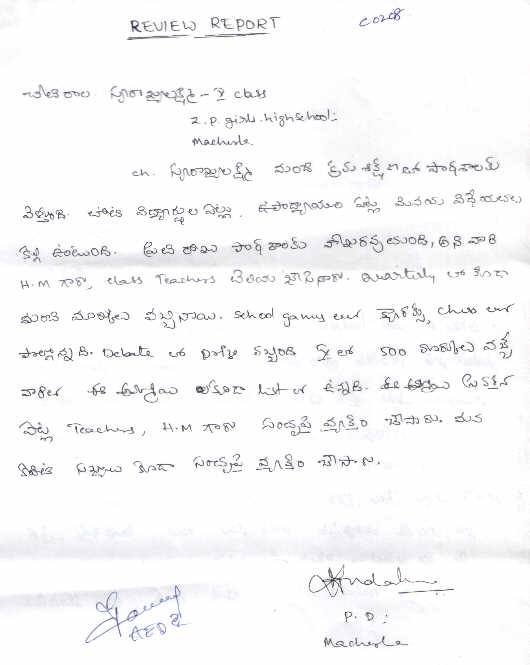 REVIEW REPORT
C0208
స్వరాజ్యలక్ష్మి - X class
Z.P. girls. high school:
Macherla.
ch. స్వరాజ్యలక్ష్మి మంచి క్రమశిక్షణ తో పాఠశాలకు
వెళ్తుంది. తోటి విద్యార్థుల పట్ల, ఉపాధ్యాయుల పట్ల వినయ విధేయతలు
కల్గి ఉంటుంది. ప్రతి రోజు పాఠశాలకు హాజరవుతుంది, అని వారి
H.M గారు, class Teachers తెలియ చేసినారు. Quarterly లో కూడా
మంచి మార్కులు వచ్చినాయి. School games లలో క్యారమ్స్, Chess లలో
పాల్గొన్నది. Debate లో వచ్చింది X లో 500 మార్కులు వచ్చే
వారిలో ఈ అమ్మాయి కూడా list లో ఉన్నది. ఈ అమ్మాయి
పట్ల Teachers, H.M గారు సంతృప్తి వ్యక్తం చేసారు. మన
కమిటి సభ్యులు కూడా సంతృప్తి వ్యక్తం చేసారు.
P.D:
AEDR
Macherla